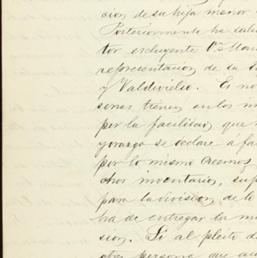 cion de su hija menor
Posteriormente ha salido
tor escluyente Dª Mari
representacion de la
y Valdivielso. Es no
sonas tienen en los mi
per la facilitad, que
yorazgo se declare a fa
por lo mismo creemos
chos inventarios, sup
para la division, de lo
ha de entregar la mi
sion. Si al pleito de
otra persona que